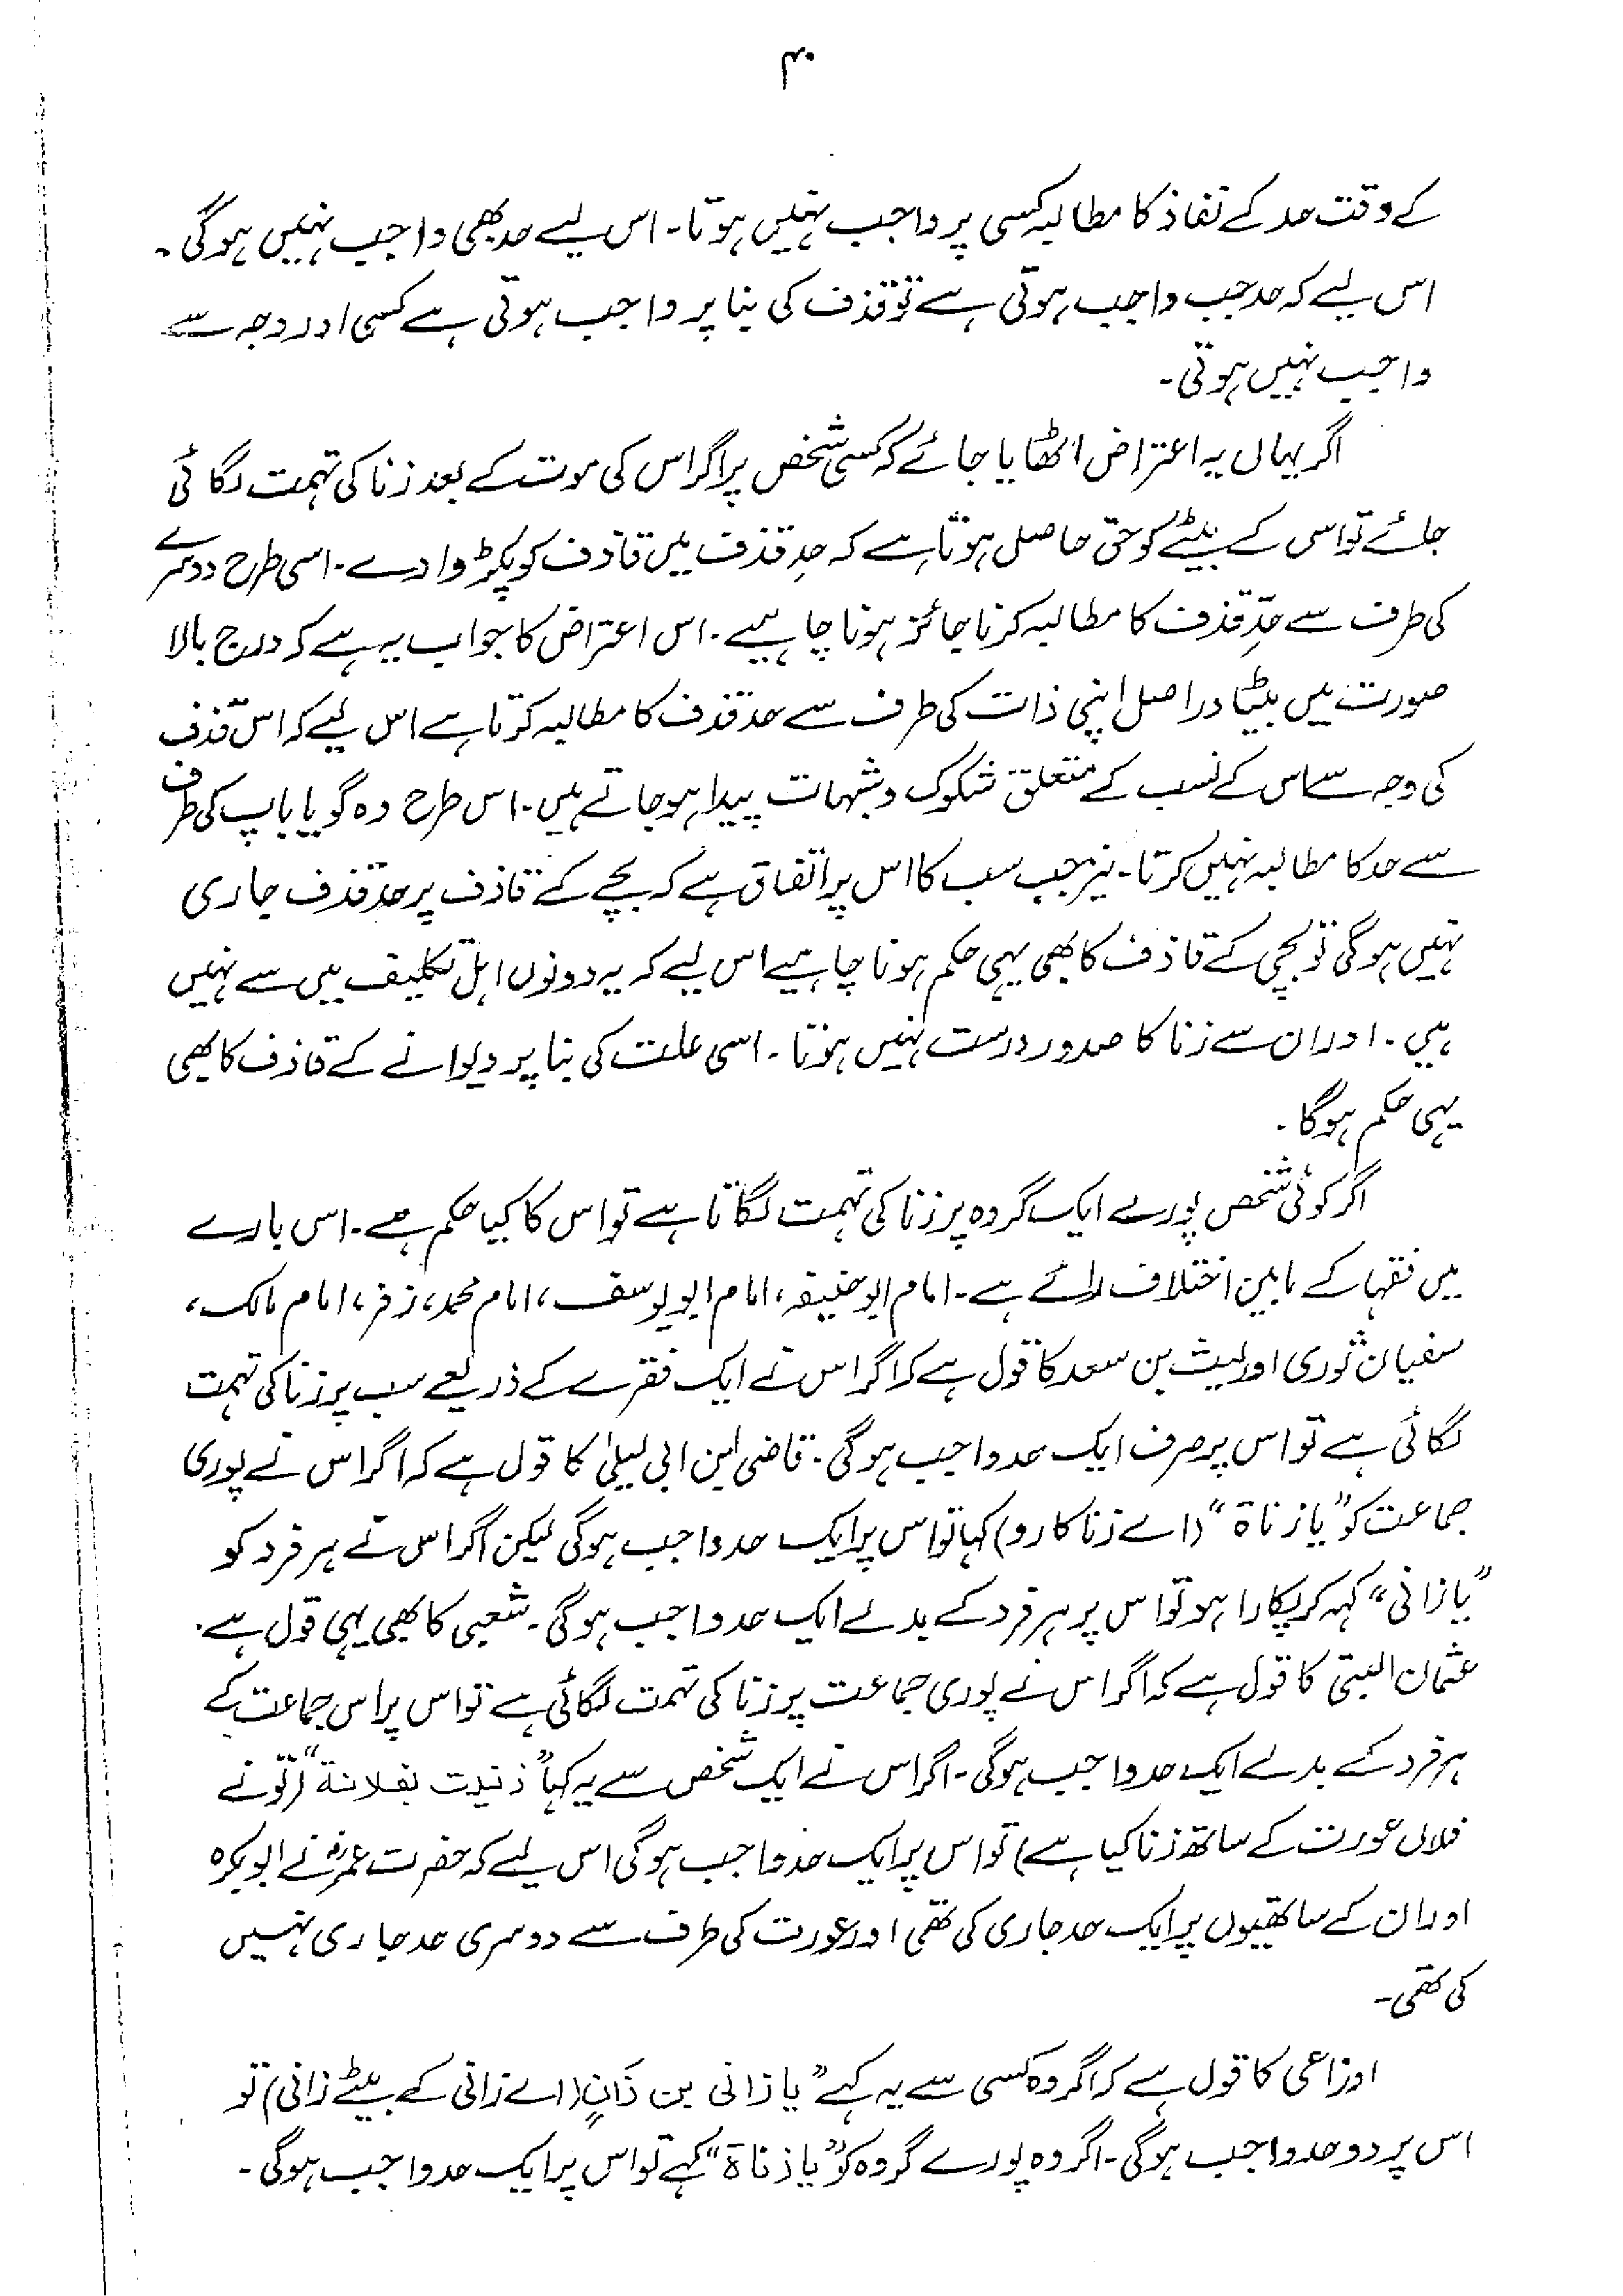 ۴۰
کے وقت حد کے نفاذ کا مطالبہ کسی پر واجب نہیں ہوتا۔ اس لیے حد بھی واجب نہیں ہوگی۔
اس لیے کہ حد جب واجب ہوتی ہے تو قذف کی بنا پر واجب ہوتی ہے کسی اور وجہ سے
واجب نہیں ہوتی۔
اگر یہاں یہ اعتراض اٹھایا جائے کہ کسی شخص پر اگر اس کی موت کے بعد زنا کی تہمت لگائی
جائے تو اس کے بیٹے کو حق حاصل ہوتا ہے کہ حدِ قذف میں قاذف کو پکڑوا دے۔ اسی طرح دوسرے
کی طرف سے حدِّ قذف کا مطالبہ کرنا جائز ہونا چاہیے۔ اس اعتراض کا جواب یہ ہے کہ درج بالا
صورت میں بیٹا دراصل اپنی ذات کی طرف سے حد قذف کا مطالبہ کرتا ہے اس لیے کہ اس قذف
کی وجہ سے اس کے نسب کے متعلق شکوک و شبہات پیدا ہو جاتے ہیں۔ اس طرح وہ گویا باپ کی طرف
سے حد کا مطالبہ نہیں کرتا۔ نیز جب سب کا اس پر اتفاق ہے کہ بچے کے قاذف پر حد قذف جاری
نہیں ہوگی تو بچی کے قاذف کا بھی یہی حکم ہونا چاہیے اس لیے کہ یہ دونوں اہل تکلیف میں سے نہیں
ہیں۔ اور ان سے زنا کا صدور درست نہیں ہوتا۔ اسی علت کی بنا پر دیوانے کے قاذف کا بھی
یہی حکم ہوگا۔
اگر کوئی شخص پورے ایک گروہ پر زنا کی تہمت لگاتا ہے تو اس کا کیا حکم ہے۔ اس بارے
میں فقہا کے مابین اختلاف رائے ہے۔ امام ابو حنیفہ، امام ابو یوسف، امام محمد، زفر، امام مالک،
سفیان ثوری اور لیث بن سعد کا قول ہے کہ اگر اس نے ایک فقرے کے ذریعے سب پر زنا کی تہمت
لگائی ہے تو اس پر صرف ایک حد واجب ہوگی۔ قاضی ابن ابی لیلیٰ کا قول ہے کہ اگر اس نے پوری
جماعت کو ”یا زناۃ“ (اے زنا کارو) کہا تو اس پر ایک حد واجب ہوگی لیکن اگر اس نے ہر فرد کو
”یا زانی“ کہہ کر پکارا ہو تو اس پر ہر فرد کے بدلے ایک حد واجب ہوگی۔ شعبی کا بھی یہی قول ہے۔
عثمان البتی کا قول ہے کہ اگر اس نے پوری جماعت پر زنا کی تہمت لگائی ہے تو اس پر اس جماعت کے
ہر فرد کے بدلے ایک حد واجب ہوگی۔ اگر اس نے ایک شخص سے یہ کہا ”زنیت بفلانة“ (تو نے
فلاں عورت کے ساتھ زنا کیا ہے) تو اس پر ایک حد واجب ہوگی اس لیے کہ حضرت عمرؓ نے ابو بکرہ
اور ان کے ساتھیوں پر ایک حد جاری کی تھی اور عورت کی طرف سے دوسری حد جاری نہیں
کی تھی۔
اوزاعی کا قول ہے کہ اگر وہ کسی سے یہ کہے ”یا زانی بن زَانٍ (اے زانی کے بیٹے زانی) تو
اس پر دو حد واجب ہوگی۔ اگر وہ پورے گروہ کو ”یا زناۃ“ کہے تو اس پر ایک حد واجب ہوگی۔